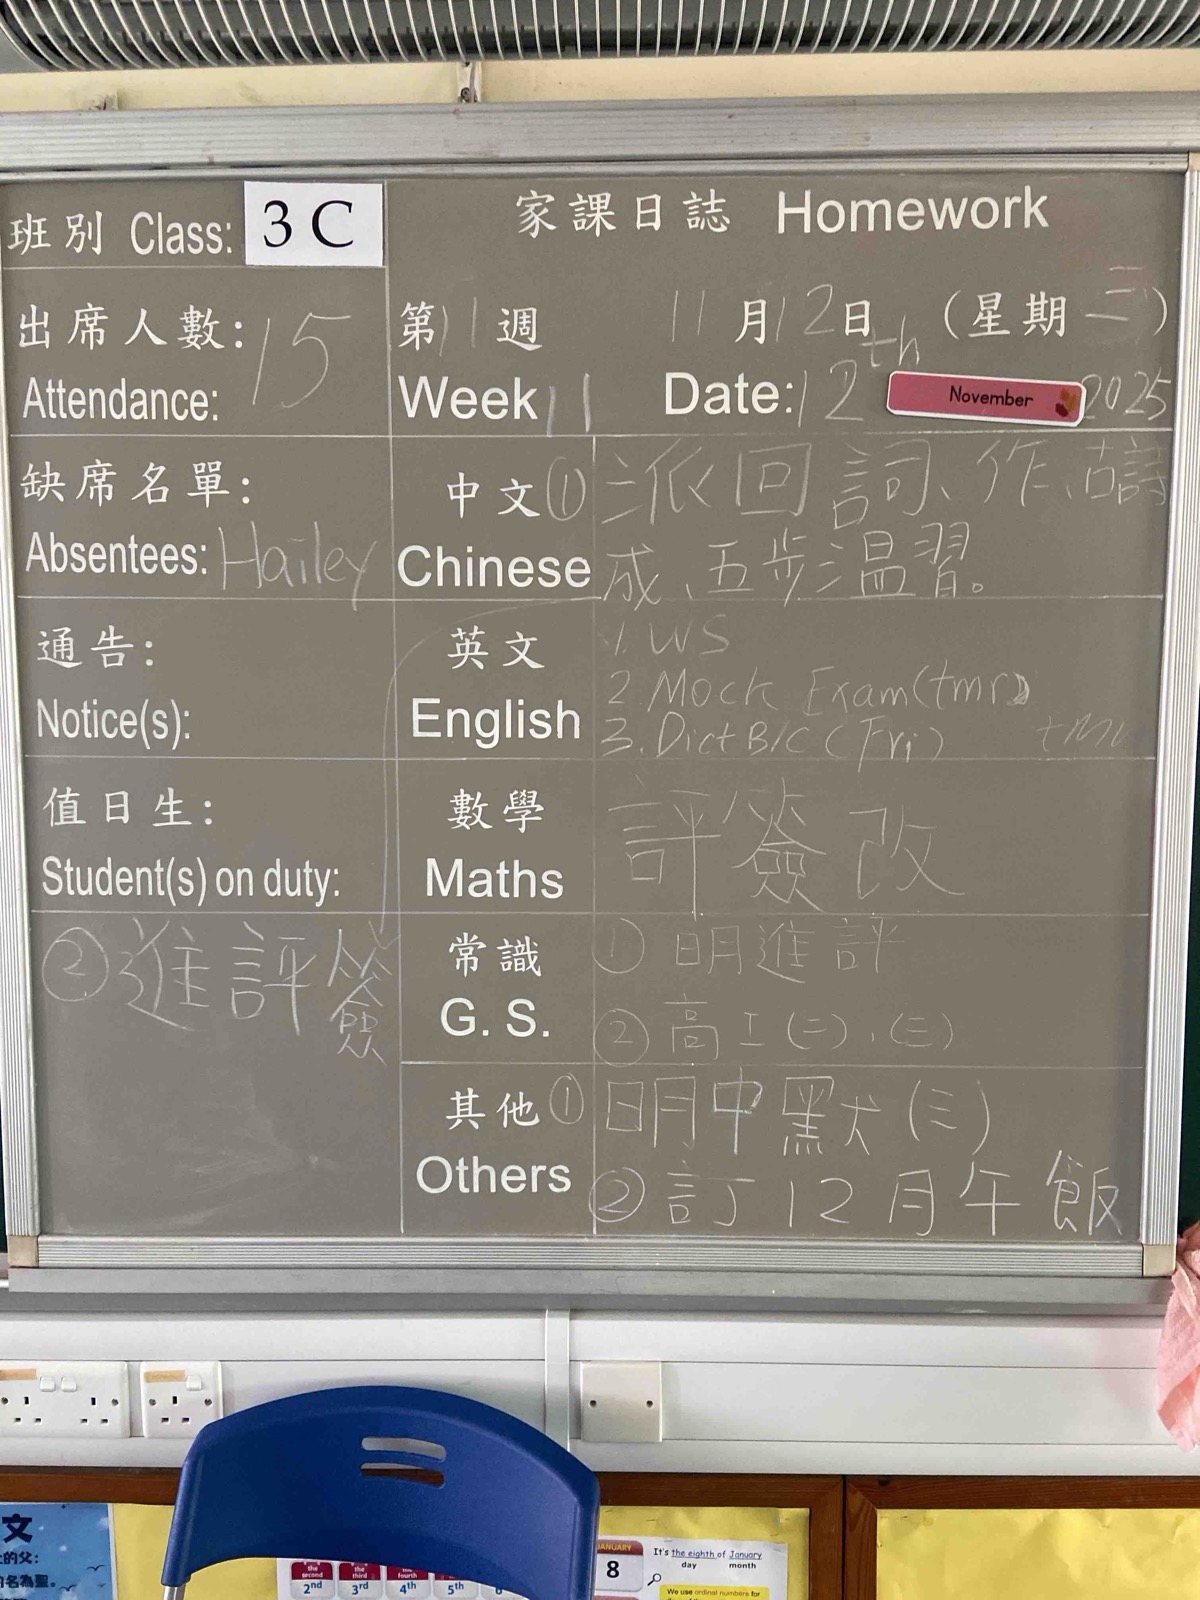 班別 Class: 3 C
家課日誌 Homework
出席人數: 15
Attendance:
第11週 11月12日 (星期三)
Week 11 Date: 12th November 2025
缺席名單:
Absentees: Hailey
通告:
Notice(s):
值日生:
Student(s) on duty:
②進評簽
中文 ①派回詞、作、古詩
Chinese 成、五步溫習。
英文 1. WS
2. Mock Exam (tmr)
English 3. Dict B/C (Fri) tmr
數學 評簽改
Maths
常識 ① 明進評
G. S. ② 高工(二)、(三)
其他 ① 明中默(三)
Others ② 訂12月午飯
文
的父:
的名為聖。
the second the third the fourth
2nd 3rd 4th 5th 6
JANUARY
8
It's the eighth of January
day month
We use ordinal numbers for